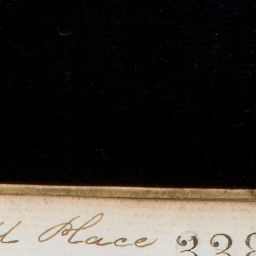 Place 338